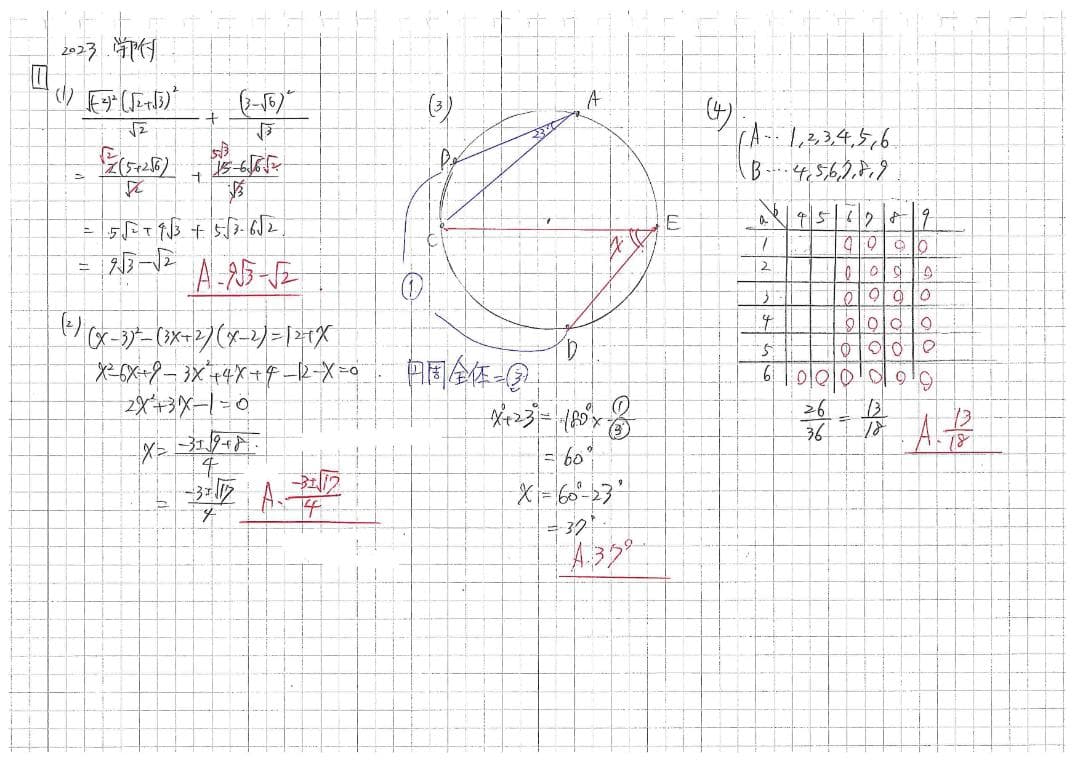 2023 学附
1
(1)
√(-2)²(√2+√3)²/√2 + (3-√6)²/√3
= √2 2(5+2√6)/√2 + 5√3 15-6√6√2/√3
= 5√2+4√3 + 5√3-6√2
= 9√3-√2
A. 9√3-√2
(2)
(x-3)²-(3x+2)(x-2)=12+x
x²-6x+9-3x²+4x+4-12-x=0
2x²+3x-1=0
x= -3±√9+8/4
= -3±√17/4
A. -3±√17/4
(3)
A
23°
B
C
E
x
①
D
円周全体=③
x°+23°=180°×①/③
=60°
x=60°-23°
=37°
A.37°
(4)
A… 1,2,3,4,5,6
B… 4,5,6,7,8,9
a b 4 5 6 7 8 9
1 0 0 0 0
2 0 0 0 0
3 0 0 0 0
4 0 0 0 0
5 0 0 0 0
6 0 0 0 0 0 0
26/36 = 13/18
A. 13/18